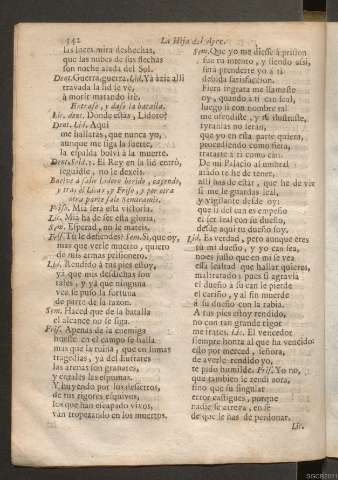 142
La Hija del Ayre.
las luces mira deshechas,
que las nubes de sus flechas
son noche aleda del Sol.
Dent. Guerra, guerra. Lid. Yà àzia alli
travada la lid se vè,
à morir matando irè.
Entrase, y dase la batalla.
Lic. dent. Donde estàs, Lidoro?
Dent. Lid. Aqui
me hallaràs, que nunca yo,
aunque me siga la suerte,
la espalda bolvì à la muerte.
Dent. Sold. 1. El Rey en la lid entrò,
seguidle, no le dexeis.
Buelve à salir Lidoro herido, cayendo,
y tras èl Licas, y Friso, y por otra
otra parte Semiramis.
Fris. Mia serà esta victoria.
Lic. Mia ha de ser esta gloria.
Sem. Esperad, no le mateis.
Fris. Tu le defiendes? Sem. Si, que oy,
mas que verle muerto, quiero
de mis armas prisionero.
Lid. Rendido à tus pies estoy,
yà que mis desdichas son
tales, y yà que ninguna
vez se puso la fortuna
de parte de la razon.
Sem. Haced que de la batalla
el alcance no se siga.
Fris. Apenas de la enemiga
hueste en el campo se halla
mas que la ruina, que en sumas
tragedias, yà del Eufrates
las arenas son granates,
y corales las espumas.
Y huyendo por los desiertos,
de tus rigores esquivos,
los que han escapado vivos,
vàn tropezando en los muertos.
Sem. Que yo me diesse à prision
fue tu intento, y siendo assi,
serà prenderte yo à ti
debida satisfaccion.
Fiera ingrata me llamaste
oy, quando à ti can leal,
luego si con nombre tal
me ofendiste, y te ilustraste,
tyranias no seràn,
que yo en esta parte quiera,
procediendo como fiera,
tratarte à ti como can.
De mi Palacio al umbral
atado te he de tener,
alli has de estar, que he de vèr
si me le guardas leal,
y vigilante desde oy;
que si del can es empeño
el ser leal con su dueño,
desde aqui tu dueño soy.
Lid. Es verdad, pero aunque eres
tù mi dueño, y yo can sea,
no es justo que en mi se vea
essa lealtad que hallar quieres,
maltratado; pues si agravia
el dueño à su can le pierde
el cariño, y al fin muerde
à su dueño con la rabia.
A tus pies estoy rendido,
no con tan grande rigor
me trates. Lic. El vencedor
siempre honra al que ha vencido:
esto por merced, señora,
de averle rendido yo,
te pido humilde. Fris. Yo no,
que tambien le rendì aora,
sino que su singular
error castigues, porque
nadie se atreva, en fè
de que le has de perdonar.
Lic.
SGCB2011